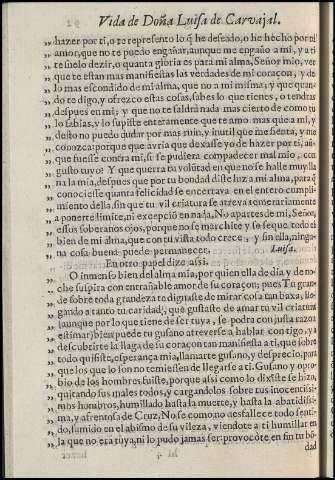 Vida de Doña Luisa de Carvajal.
„ hazer por ti, o te represento lo q̃ he deseado, o he hecho por tu
„ amor, que no te puedo engañar, aunque me engaño a mi, y a ti
„ te suelo dezir, o quanta gloria es para mi alma, Señor mio, ver
„ que te estan mas manifiestas las verdades de mi coraçon, y de
„ lo mas escondido de mi alma, que no a mi misma; y que quan-
„ do te digo, y ofrezco estas cosas, sabes lo que tienes, o tendras
„ despues en mi; y que no te saldrà nada mas cierto de como tu
„ lo sabias, y lo supiste enteramente que te amo mas que a mi, y
„ desto no puedo dudar por mas ruin, y inutil que me sienta, y me
„ conozca: porque que avria que dexasse yo de hazer por ti, aun-
„ que fuesse contra mi, si se pudiera compadecer mal mio, con
„ gusto tuyo? Y que querra tu volũtad en que no se halle muy lla
„ na la mia, despues que por tu bondad diste luz a mi alma, para q̃
„ conociesse quanta felicidad se encerrava en el entero cumpli-
„ miento della, sin que tu vil criatura se atreva temerariamente
„ a ponerte limite, ni excepciõ en nada. No apartes de mi, Señor,
„ essos soberanos ojos, porque no se marchite y se seque todo el
„ bien de mi alma, que con tu vista todo crece, y sin ella, ningu-
„ na cosa buena puede permanecer. Luisa.
En otro papel dize assi.
„ O inmenso bien del alma mia, por quien ella de dia, y de no-
„ che suspira con entrañable amor de su coraçon; pues Tu gran-
„ de sobre toda grandeza te dignaste de mirar cosa tan baxa, lle-
„ gando a tanto tu caridad, que gustaste de amar tu vil criatura
„ (aunque por lo que tiene de ser tuya, se podra con justa razon
„ estimar) bien puede tu gusano atreverse a hablar contigo, y a
„ descubrirte la llaga de su coraçon tan manifiesta a ti, que sobre
„ todo quisiste, esperança mia, llamarte gusano, y desprecio, para
„ que los que lo son no temiessen de llegarse a ti. Gusano y opro-
„ bio de los hombres fuiste, porque assi como lo dixste se hizo,
„ quitando sus males todos, y cargandolos sobre tus inocentissi-
„ mos hombros, humillado hasta la muerte, y hasta la abatidissi-
„ ma, y afrentosa de Cruz. No se como no desfallece todo senti-
„ do, sumido en el abismo de su vileza, viendote a ti humillar en
„ la que no era tuya, ni lo pudo jamas ser: provocòte en fin tu bõ-
dad